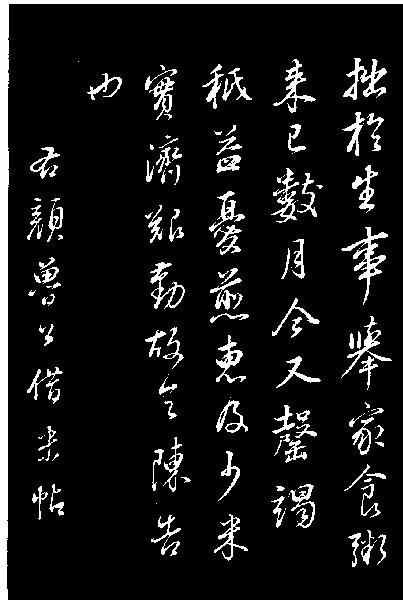 拙於生事舉家食粥
来已數月今又罄竭
秖益憂煎惠及少米
實濟艱勤故令陳告
也
右顏魯公借米帖